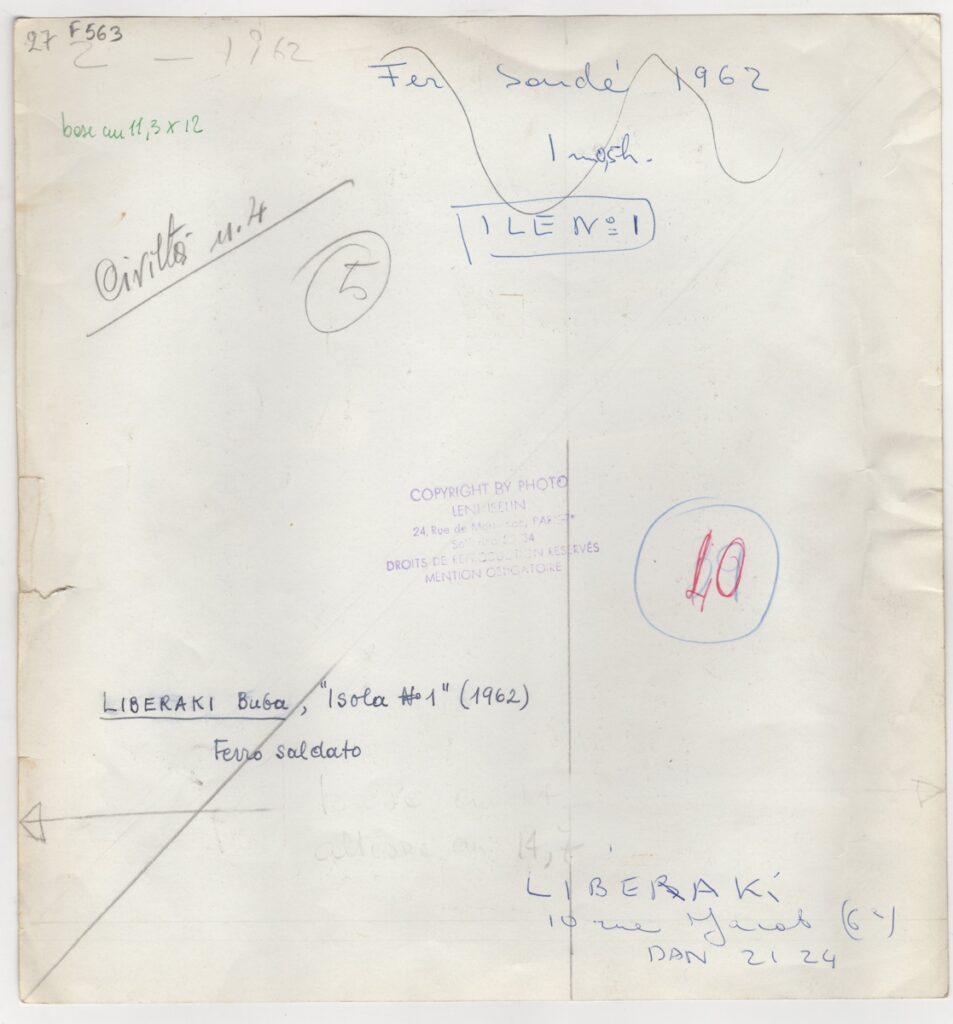 27 F563
2 — 1962
Fer Soudé 1962
base cm 11,3 x 12
ILE Nº 1
Civiltà n. 4
5
COPYRIGHT BY PHOTO
LENI ISELIN
24, Rue de PARIS
34
DROITS DE REPRODUCTION RÉSERVÉS
MENTION OBLIGATOIRE
10
LIBERAKI Buba, "Isola Nº 1" (1962)
Ferro saldato
base cm
altezza cm 14,7
LIBERAKI
10 rue Jacob (6e)
DAN 21 24